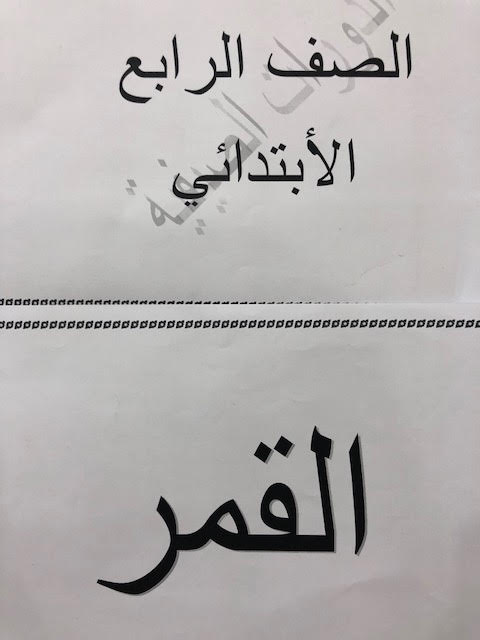 الصف الرابع
الأبتدائي
القمر